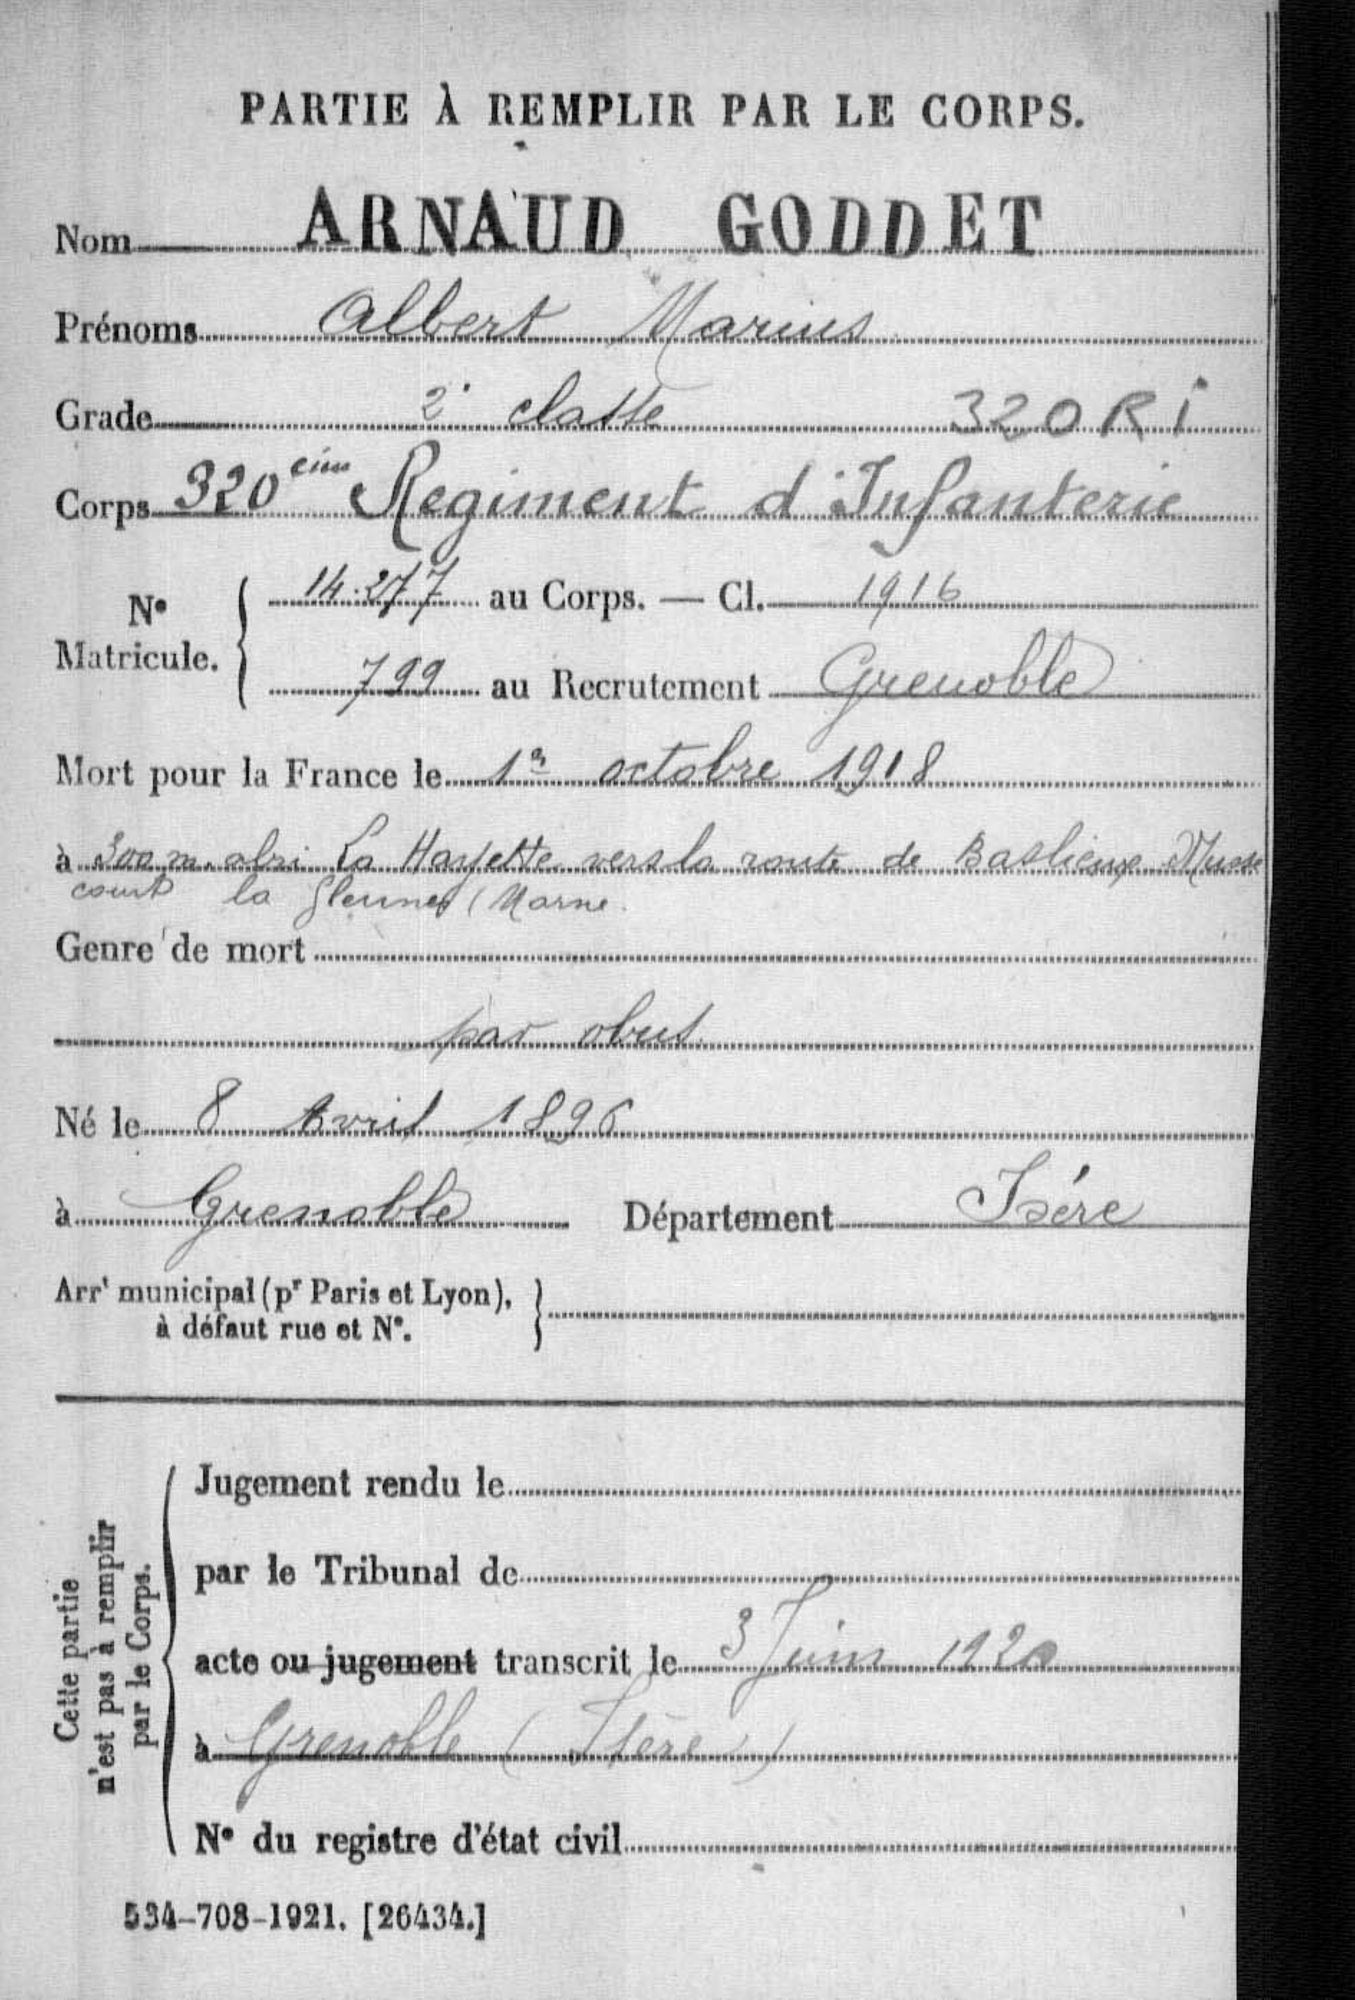 PARTIE À REMPLIR PAR LE CORPS.
Nom ARNAUD GODDET
Prénoms Albert Marius
Grade 2e classe 320 RI
Corps 320eime Regiment d'Infanterie
No Matricule. 14.277 au Corps. — Cl. 1916
799 au Recrutement Grenoble
Mort pour la France le 1er octobre 1918
à 300 m. abri La Hayette vers la route de Baslieux Musse
court la Gleunes (Marne
Genre de mort
par obus.
Né le 8 Avril 1896
à Grenoble Département Isére
Arrt municipal (pr Paris et Lyon),
à défaut rue et No.
Cette partie
n'est pas à remplir
par le Corps.
Jugement rendu le
par le Tribunal de
acte ou jugement transcrit le 3 Juin 1920
à Grenoble (Isère)
No du registre d'état civil
534-708-1921. [26434.]